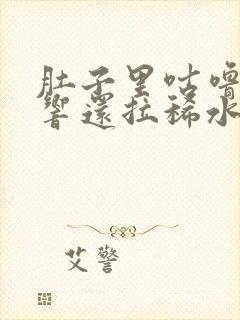 肚子里咕噜
响还拉稀水
艾警